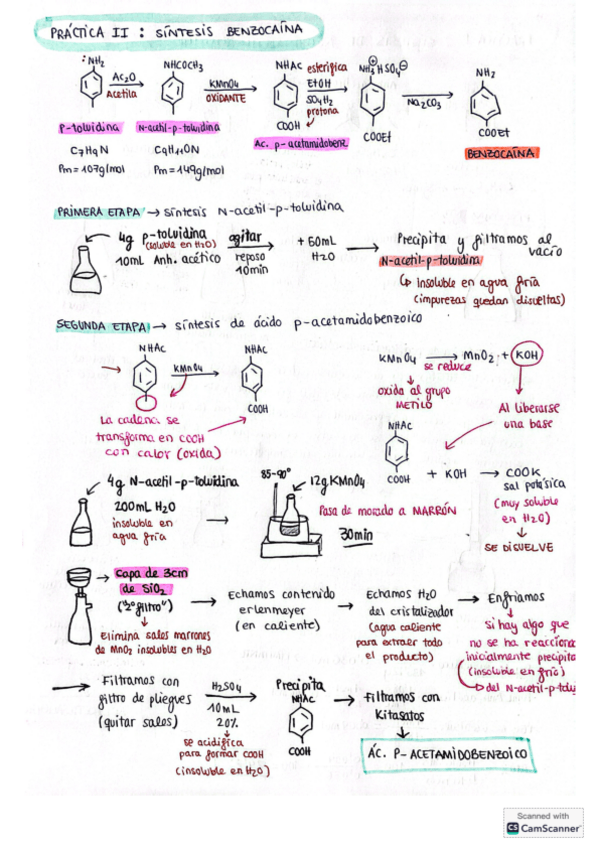 PRÁCTICA II : SÍNTESIS BENZOCAÍNA
:NH2
Ac2O
Acetila
NHCOCH3
KMnO4
OXIDANTE
NHAC
COOH
esterifica
EtOH
SO4H2
protona
NH3 HSO4⊖
⊕
COOEt
Na2CO3
NH2
COOEt
P-toluidina
N-acetil-p-toluidina
Ac. p-acetamidobenz
BENZOCAÍNA
C7H9N
C9H11ON
Pm=107g/mol
Pm=149g/mol
PRIMERA ETAPA → síntesis N-acetil-p-toluidina
4g p-toluidina
(soluble en H2O)
10mL Anh. acético
agitar
reposo
10min
+ 50mL
H2O
Precipita y filtramos al
vacío
N-acetil-p-toluidina
↳ insoluble en agua fría
(impurezas quedan disueltas)
SEGUNDA ETAPA → síntesis de ácido p-acetamidobenzoico
NHAC
KMnO4
NHAC
COOH
La cadena se
transforma en COOH
con calor (oxida)
KMnO4 → MnO2 + KOH
se reduce
oxida al grupo
METILO
Al liberarse
una base
NHAC
COOH
+ KOH → COOK
sal potásica
(muy soluble
en H2O)
↓
SE DISUELVE
4g N-acetil-p-toluidina
200mL H2O
insoluble en
agua fría
85-90°
12g KMnO4
Pasa de morado a MARRÓN
30min
Capa de 3cm
de SiO2
("2º filtro")
Elimina sales marrones
de MnO2 insolubles en H2O
Echamos contenido
erlenmeyer
(en caliente)
Echamos H2O
del cristalizador
(agua caliente
para extraer todo
el producto)
Enfriamos
Si hay algo que
no se ha reacciona
inicialmente precipita
(insoluble en frío)
↳ del N-acetil-p-tolu
Filtramos con
filtro de pliegues
(quitar sales)
H2SO4
10mL
20%
se acidifica
para formar COOH
(insoluble en H2O)
Precipita
NHAC
COOH
Filtramos con
Kitasatos
ÁC. P-ACETAMIDOBENZOICO
Scanned with
CS CamScanner